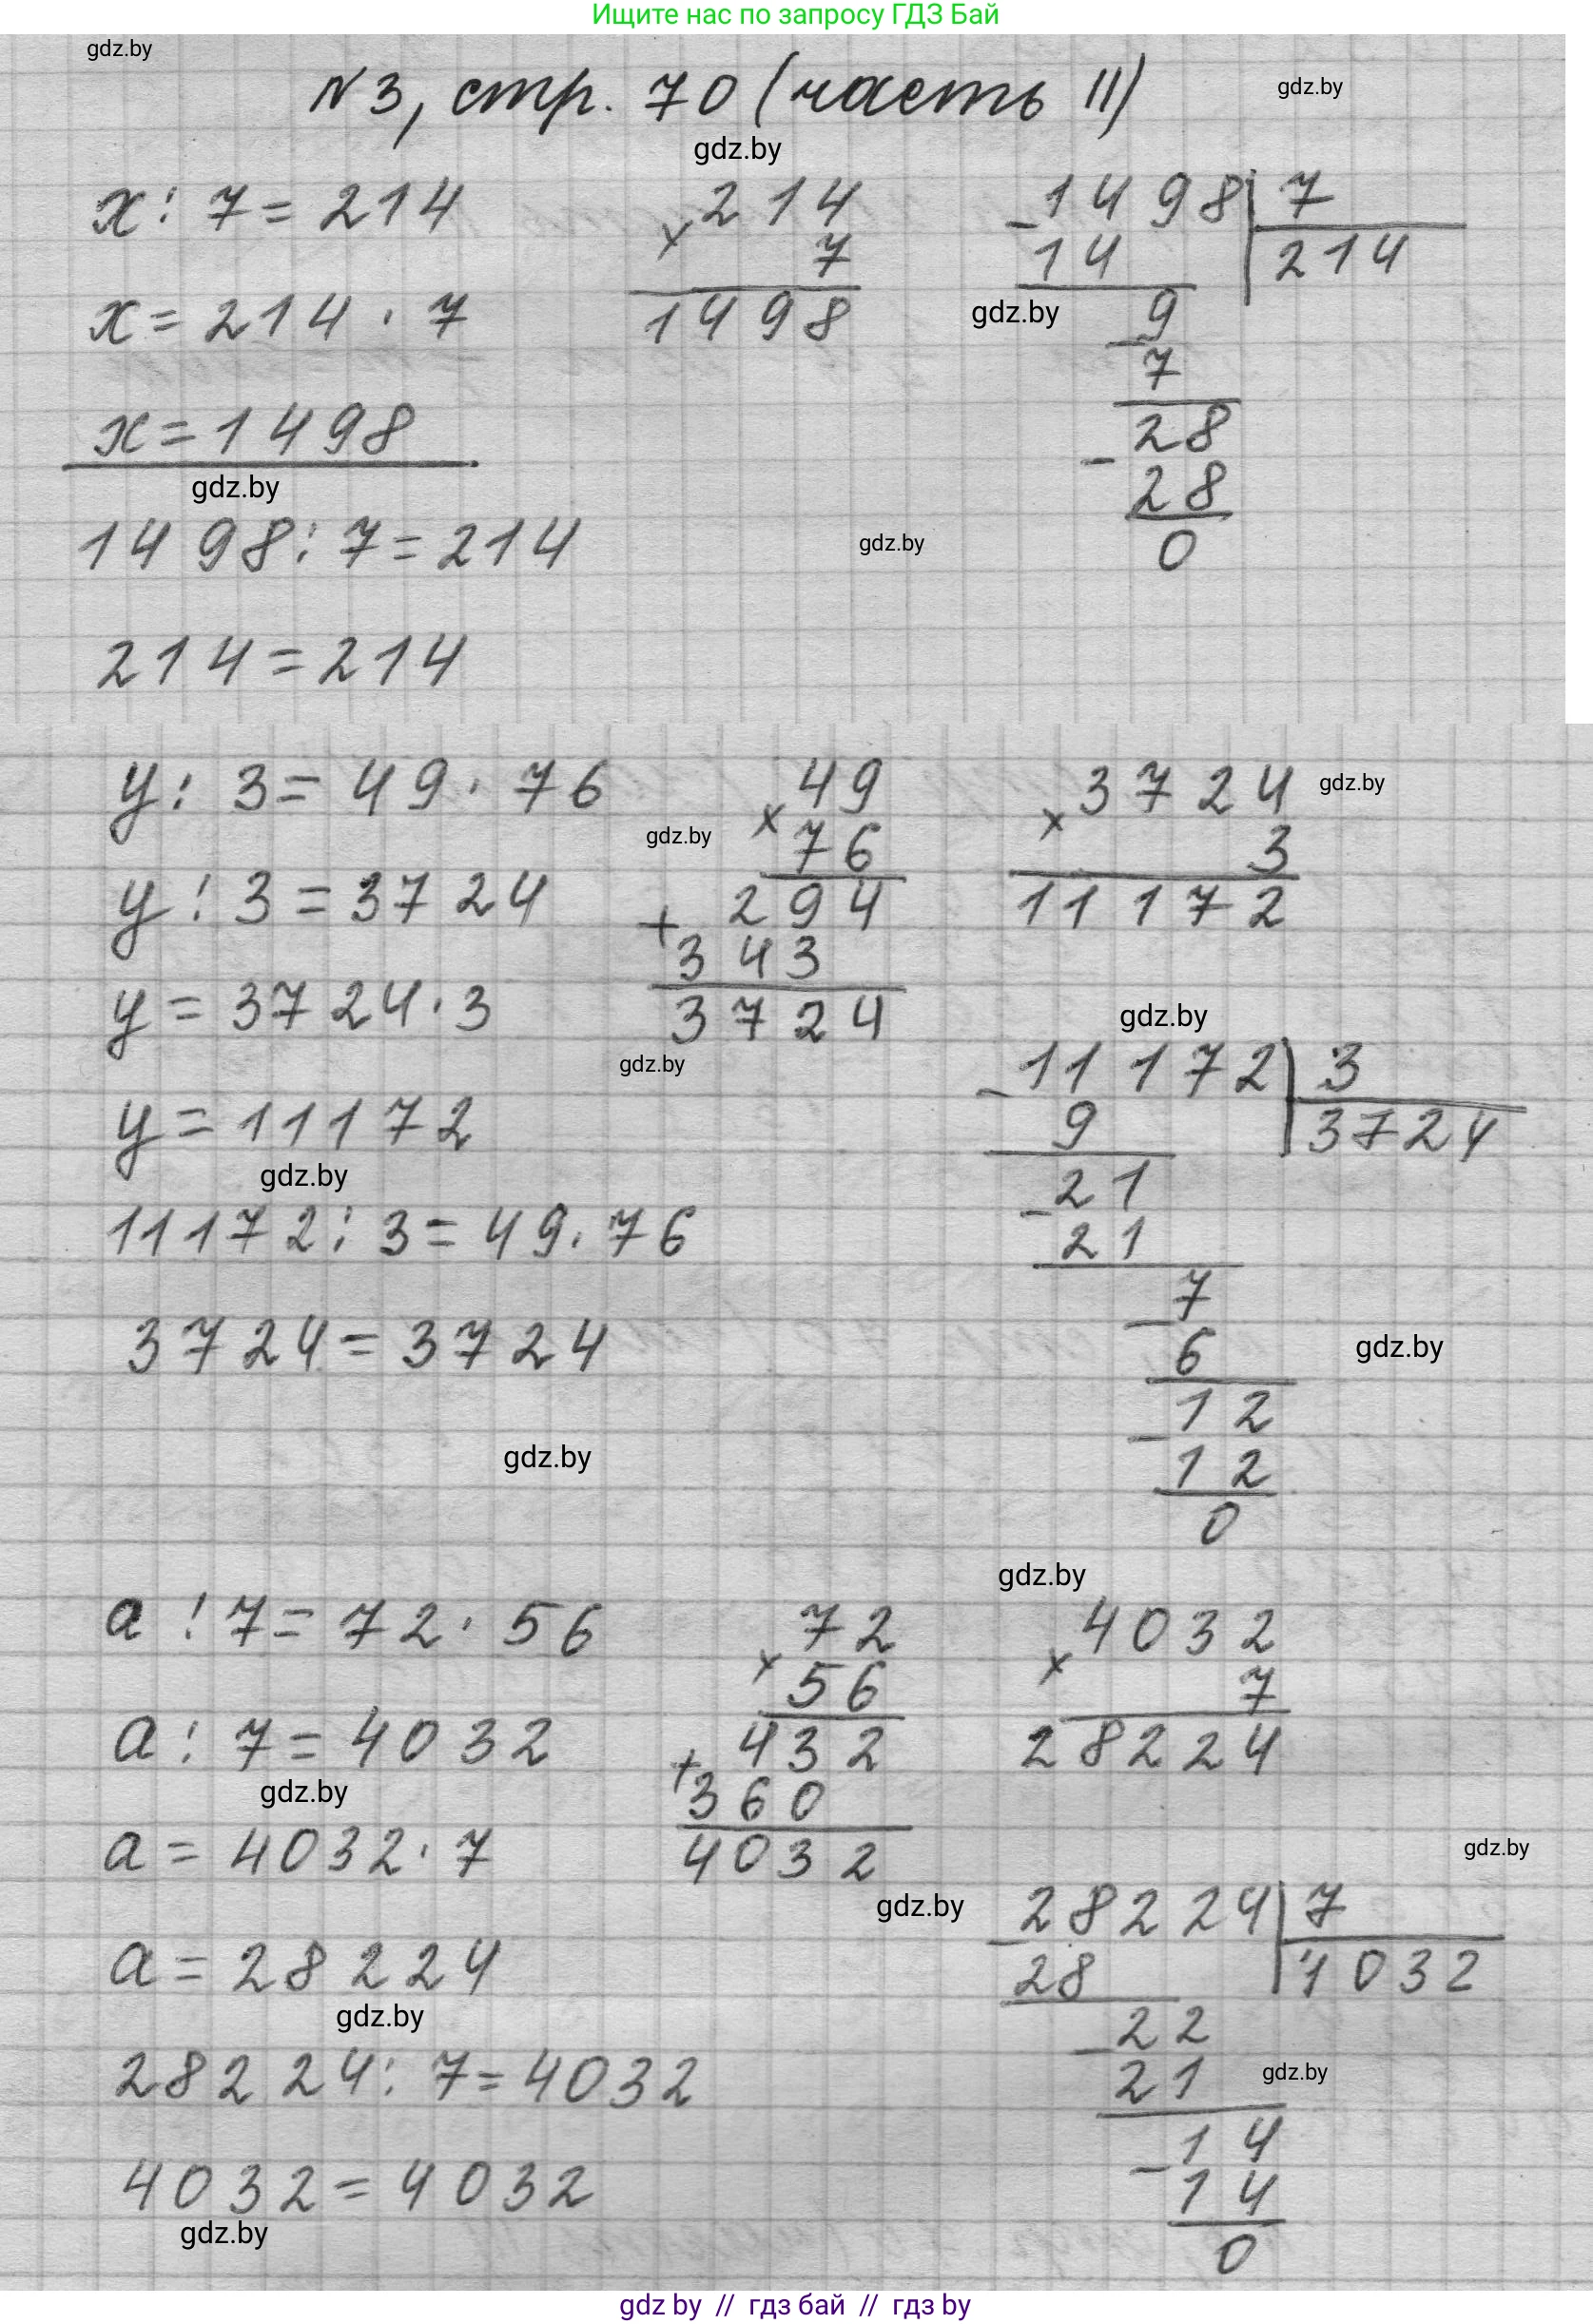 Ищите нас по запросу ГДЗ Бай
gdz.by
№3, стр. 70 (часть II)
gdz.by
gdz.by
x : 7 = 214
x = 214 · 7
x = 1498
gdz.by
1498 : 7 = 214
214 = 214
× 214
7
1498
- 1498 | 7
14 | 214
gdz.by
- 9
7
- 28
28
0
gdz.by
y : 3 = 49 · 76
y : 3 = 3724
y = 3724 · 3
y = 11172
gdz.by
11172 : 3 = 49 · 76
3724 = 3724
gdz.by
49
× 76
gdz.by
+ 294
343
3724
gdz.by
× 3724
3
11172
gdz.by
gdz.by
- 11172 | 3
9 | 3724
- 21
21
- 7
6
gdz.by
- 12
12
0
a : 7 = 72 · 56
a : 7 = 4032
gdz.by
a = 4032 · 7
a = 28224
gdz.by
28224 : 7 = 4032
4032 = 4032
gdz.by
72
× 56
+ 432
360
4032
gdz.by
gdz.by
× 4032
7
28224
gdz.by
- 28224 | 7
28 | 4032
- 22
21
gdz.by
- 14
14
0
gdz by // гдз бай // гдз by